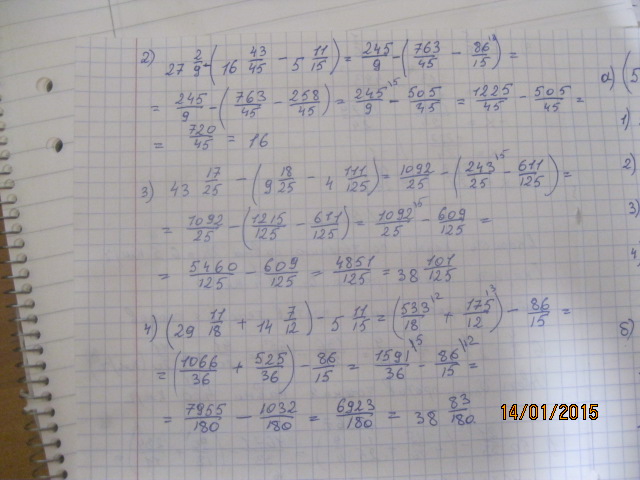 2) 27 2/9 - (16 43/45 - 5 11/15) = 245/9 - (763/45 - 86/15) =
= 245/9 - (763/45 - 258/45) = 245/9 \5 - 505/45 = 1225/45 - 505/45 =
= 720/45 = 16
3) 43 17/25 - (9 18/25 - 4 111/125) = 1092/25 - (243/25 \5 - 611/125) =
= 1092/25 - (1215/125 - 611/125) = 1092/25 \5 - 609/125 =
= 5460/125 - 609/125 = 4851/125 = 38 101/125
4) (29 11/18 + 14 7/12) - 5 11/15 = (533/18 \2 + 175/12 \3) - 86/15 =
= (1066/36 + 525/36) - 86/15 = 1591/36 \5 - 86/15 \12 =
= 7955/180 - 1032/180 = 6923/180 = 38 83/180
а) (5
1)
2)
3)
4)
б)
14/01/2015